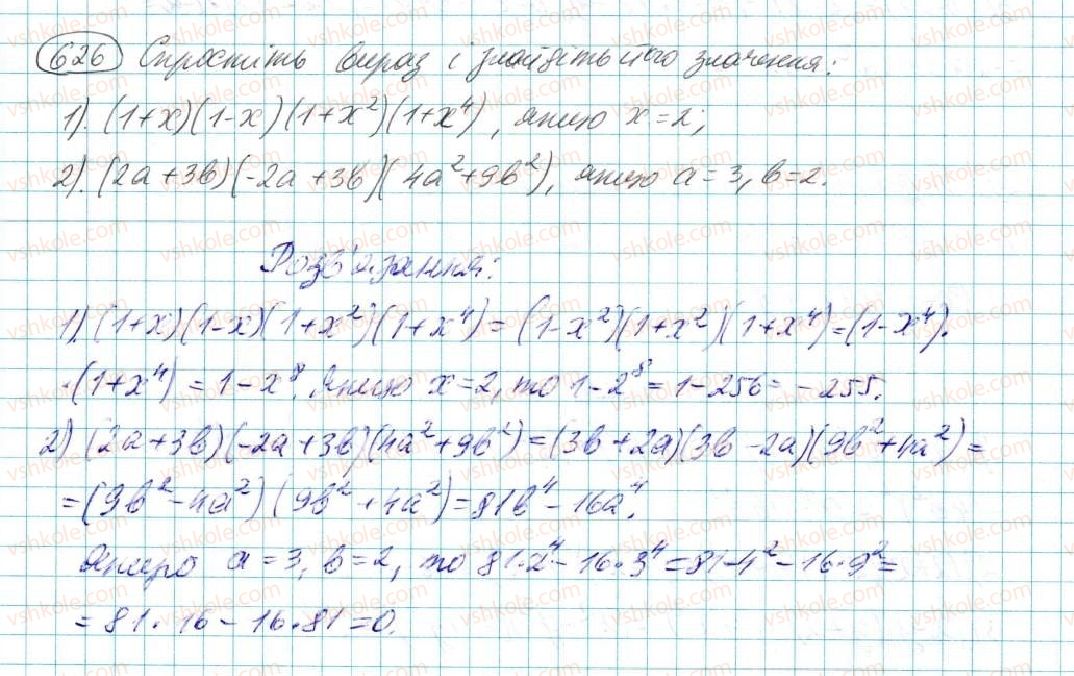 626 Спростіть вираз і знайдіть його значення:
1). (1+x)(1-x)(1+x²)(1+x⁴), якщо x=2;
2). (2a+3b)(-2a+3b)(4a²+9b²), якщо a=3, b=2.
Розв'язання:
1). (1+x)(1-x)(1+x²)(1+x⁴)=(1-x²)(1+x²)(1+x⁴)=(1-x⁴)·
·(1+x⁴)=1-x⁸. Якщо x=2, то 1-2⁸=1-256=-255.
2) (2a+3b)(-2a+3b)(4a²+9b²)=(3b+2a)(3b-2a)(9b²+4a²)=
=(9b²-4a²)(9b²+4a²)=81b⁴-16a⁴.
Якщо a=3, b=2, то 81·2⁴-16·3⁴=81·4²-16·9²=
=81·16-16·81=0.